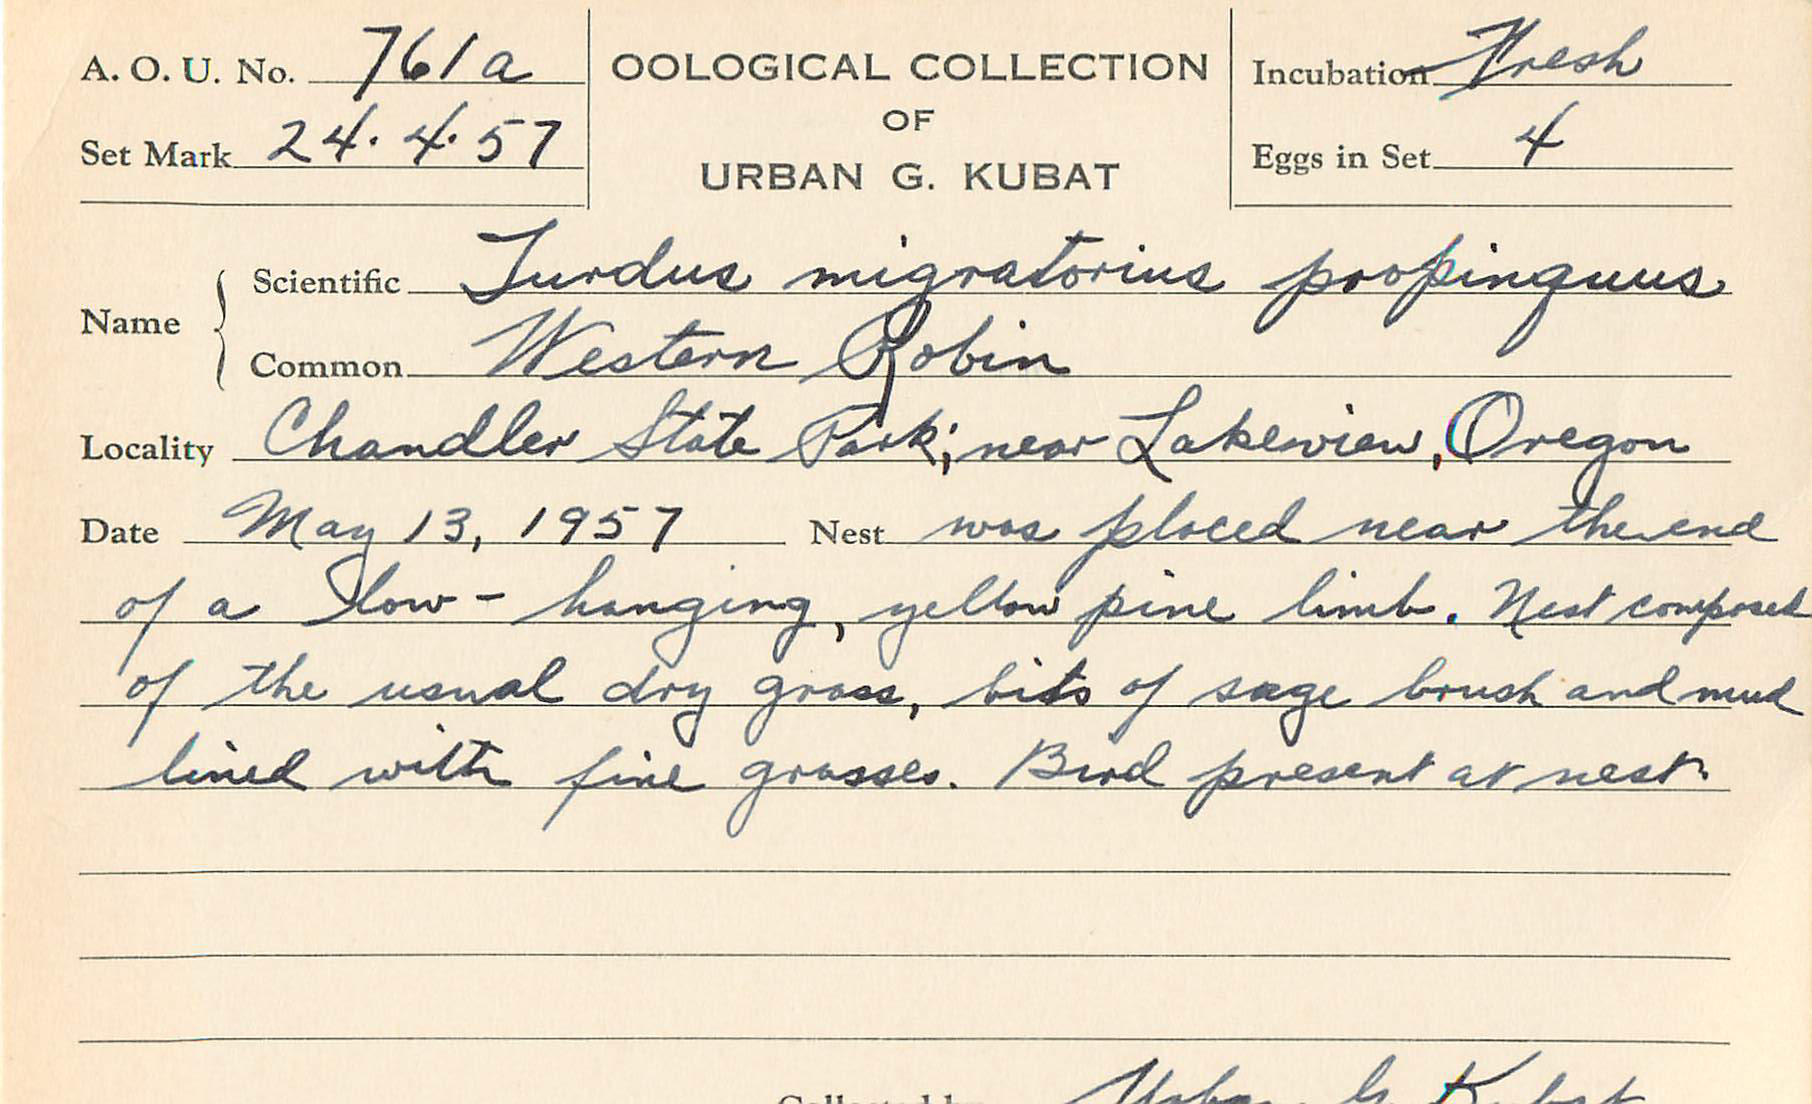 A. O. U. No. 761a
Set Mark 24·4·57
OOLOGICAL COLLECTION
OF
URBAN G. KUBAT
Incubation Fresh
Eggs in Set 4
Name
Scientific Turdus migratorius propinquus
Common Western Robin
Locality Chandler State Park; near Lakeview, Oregon
Date May 13, 1957 Nest was placed near the end
of a low-hanging, yellow pine limb. Nest composed
of the usual dry grass, bits of sage brush and mud
lined with fine grasses. Bird present at nest.
Collected by Urban G. Kubat